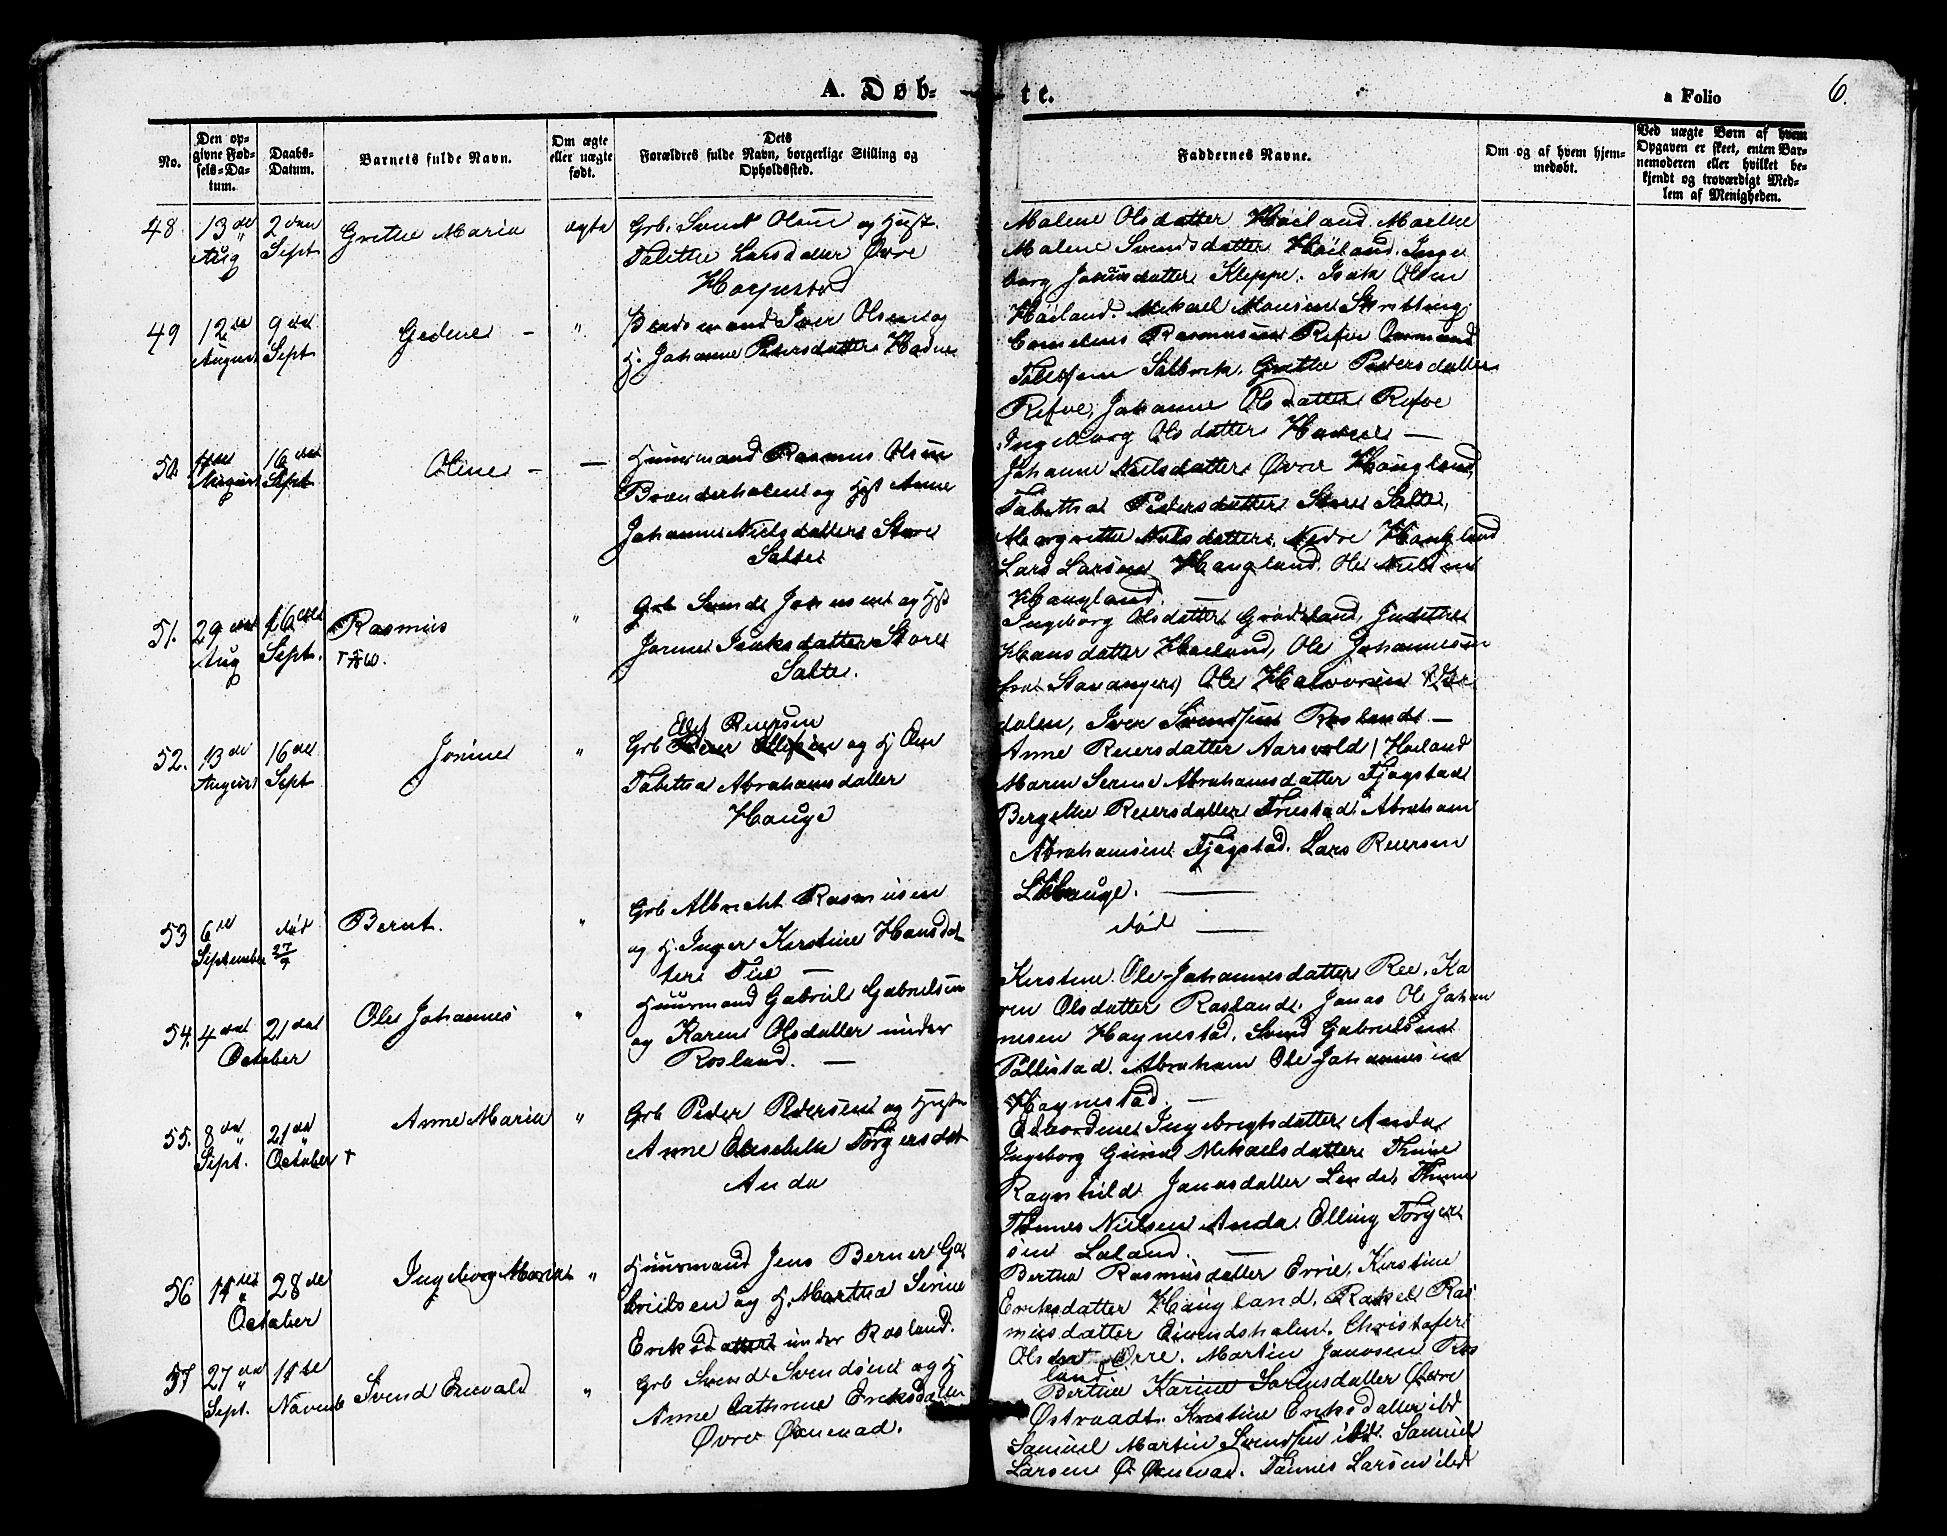 A. Døb-
te.
a Folio
6.
No.
Den op-
givne Fød-
sels-Da-
tum.
Daabs-
Datum.
Barnets fulde Navn.
Om ægte
eller uægte
født.
Dets
Forældres fulde Navn, borgerlige Stilling og
Opholdssted.
Faddernes Navne.
Om og af hvem hjem-
medøbt.
Ved uægte Børn af hvem
Opgaven er skeet, enten Bar-
nemoderen eller hvilket be-
kjendt og troværdigt Med-
lem af Menigheden.
48. 13de Aug
2den Sept
Grethe Maria
ægte
Grb. Svend Olsen og Hust.
Tabitha Larsdatter Øvre
Malene Olsdatter Høiland. Marthe
Malene Svendsdatter Høiland. Inge
borg Jonasdatter Kleppe. Isak Olsen
Høiland. Mikael Monsen
49 12te August
9de Sept
Gedine -
"
Iver Olsen og
H. Johanne Pedersdatter Hadne
Cornelius Rasmussen Refve
Grethe Pedersdatter
Refve, Johanne Olsdatter Refve
Ingeborg Olsdatter Hadne —
50. August
16de Sept
Oline -
—
Huusmand Rasmus Olsen
og Hst Anne
Johanne Nielsdatter Store
Salte
Johanne Nielsdatter Øvre Haugland,
Tabitha Pedersdatter Store Salte,
Margrethe Nielsdatter, Nedre Haugland
Lars Larsen Haugland. Ole Nielsen
Haugland. —
51. 29de Aug
16de Sept.
Rasmus
"
Grb Svend Johnsen og Hst
Isaksdatter Store
Salte.
Ingeborg Olsdatter Grødeland,
Hansdatter Høiland, Ole Johannesen
fra Stavanger) Ole Halvorsen
dalen, Iver Svendsen Rosland —
52. 13de August
16de Sept
Jonine
"
Elef Reiersen
Grb og H
Tabitha Abrahamsdatter
Hauge
Anne Reiersdatter Aarsvold / Høiland
Maren Serine Abrahamsdatter Tjøgstad
Bergitte Reiersdatter Friestad. Abraham
Abrahamsen Tjøgstad. Lars Reiersen
Hauge. —
53 6te September
død 27/9
Bernt.
"
Grb Albrecht Rasmusen
og H. Inger Kirstine Hansdat
ter Tu —
død —
54. 4de October
21de
Ole Johannes
"
Huusmand Gabriel Gabrielsen
og Karen Olsdatter under
Rosland. —
Kirstine Ole-Johannesdatter Ree. Ka
ren Olsdatter Rosland. Jonas Ole Johan
nesen Haynestad. Svend Gabrielsen
Abraham Ole Johannesen
Haynestad. —
55. 8de Sept.
21de October †
Anne Maria
"
Grb Peder Pedersen og Hust
Anne Elisabeth Torgersdat
Anda
Ingebregtsdatter Anda,
Ingeborg Mikaelsdatter Thime
Ragnhild Jonasdatter Lende, Thime
Nielsen Anda. Elling Torger
sen Laland. —
56 11te October
28de
Ingeborg Maria
"
Huusmand Jens Berner Ga
brielsen og H. Martha Serine
Eriksdatter under Rosland.
Bertha Rasmusdatter Orre, Kirstine
Eriksdatter Haugland, Rakel Ras
musdatter Eivindsholen. Christofer
Orre. Martin Jonassen Ros
land.
57 27de Sept.
11te Novemb
Svend Enevald
"
Grb Svend Svendsen og H
Anne Cathrine Eriksdatter
Øvre Øxnevad.
Bertine Karine Sørensdatter Øvre
Østraadt. Kirstine Eriksdatter ibd
Samuel Martin Svendsen ibd. Samuel
Larsen Ø. Øxnevad. Tønnes Larsen ibd